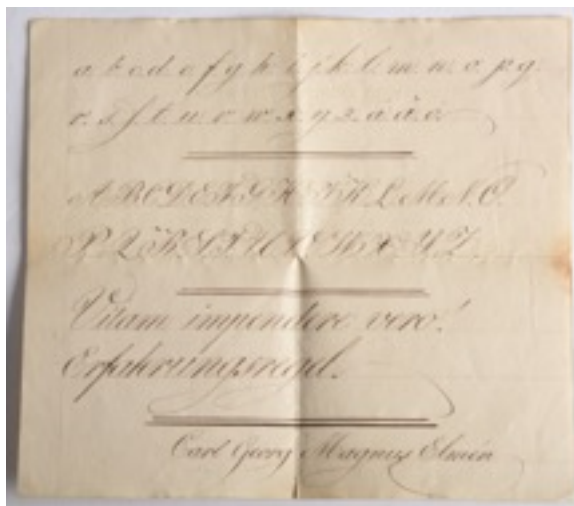 a. b. c. d. e. f. g. h. i. j. k. l. m. n. o. p. q.
r. s. ſ. t. u. v. w. x. y. z. å. ä. ö.
A. B. C. D. E. F. G. H. I. J. K. L. M. N. O.
P. Q. R. S. T. U. V. W. X. Y. Z.
Vitam impendere vero!
Erfahrungsregel.
Carl Georg Magnus Elmén